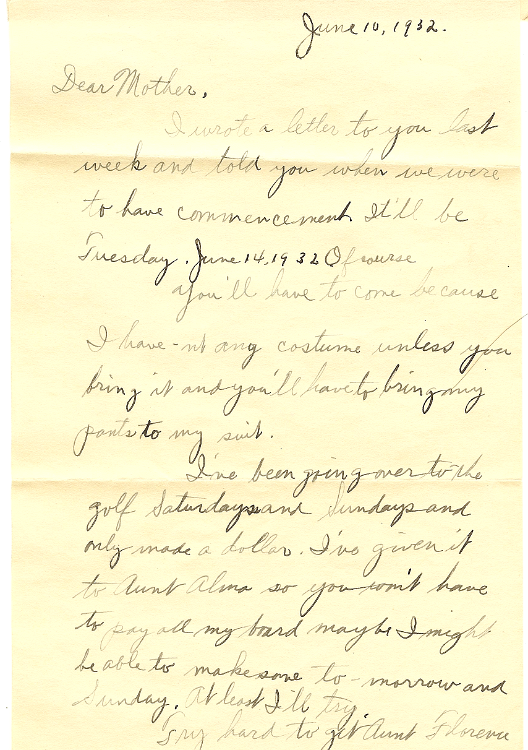 June 10, 1932.
Dear Mother,
I wrote a letter to you last
week and told you when we were
to have commencement. It'll be
Tuesday. June 14, 1932 Of course
you'll have to come because
I have-nt any costume unless you
bring it and you'll have to bring my
pants to my suit.
I've been going over to the
golf Saturdays and Sundays and
only made a dollar. I've given it
to Aunt Alma so you won't have
to pay all my board maybe I might
be able to make some to-morrow and
Sunday. At least I'll try.
Try hard to get Aunt Florence